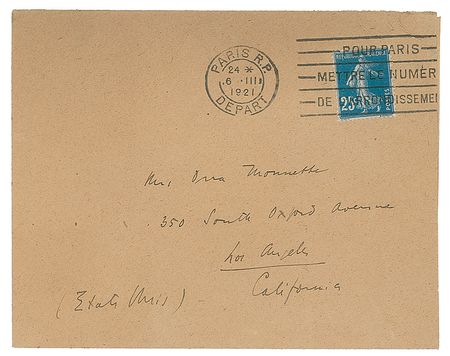 PARIS R.P.
24 *
6 III
1921
DEPART
POUR PARIS
METTRE LE NUMÉR
DE ARRONDISSEMEN
25
Mrs Ora Monnette
350 South Oxford Avenue
Los Angeles
California
(Etats Unis)